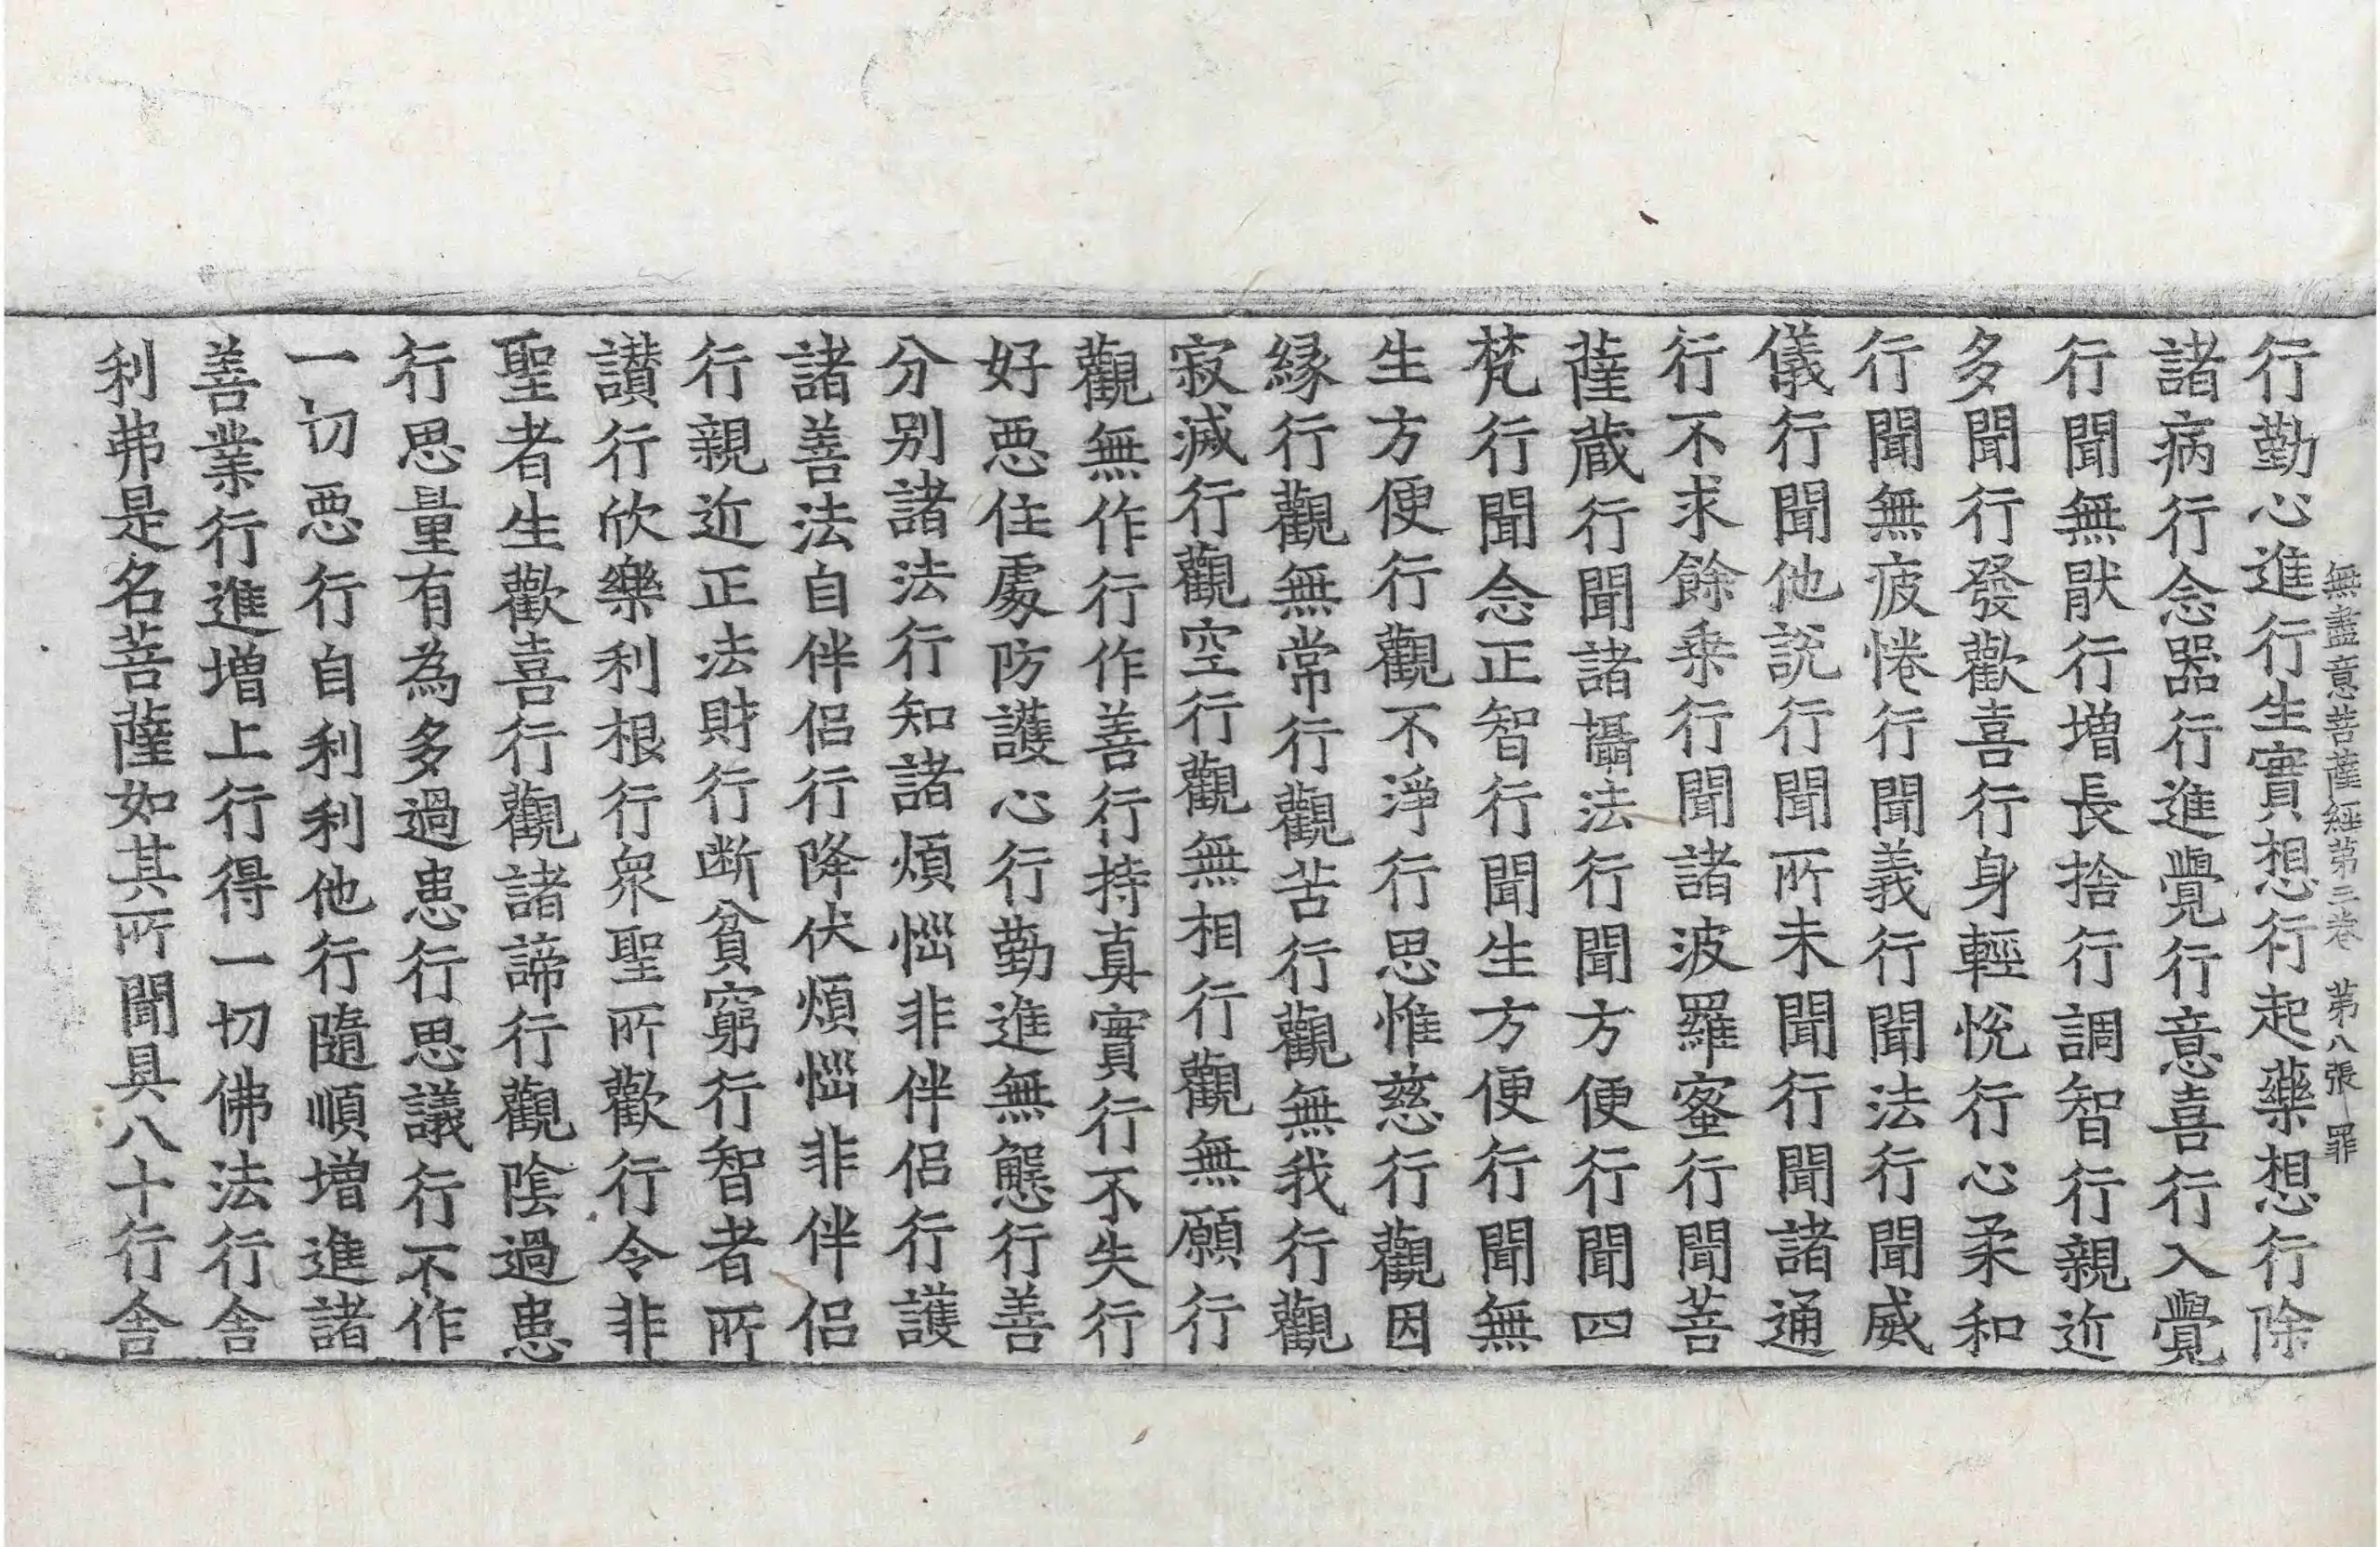 無盡意菩薩經第三卷 第八張 罪
行勤心進行生實想行起藥想行除
諸病行念器行進覺行意喜行入覺
行聞無猒行增長捨行調智行親近
多聞行發歡喜行身輕悅行心柔和
行聞無疲惓行聞義行聞法行聞威
儀行聞他說行聞所未聞行聞諸通
行不求餘乗行聞諸波羅蜜行聞菩
薩蔵行聞諸攝法行聞方便行聞四
梵行聞念正智行聞生方便行聞無
生方便行觀不淨行思惟慈行觀因
縁行觀無常行觀苦行觀無我行觀
寂滅行觀空行觀無相行觀無願行
觀無作行作善行持真實行不失行
好悪住處防護心行勤進無懈行善
分別諸法行知諸煩惱非伴侶行護
諸善法自伴侶行降伏煩惱非伴侶
行親近正法財行断貧窮行智者所
讃行欣樂利根行衆聖所歡行令非
聖者生歡喜行觀諸諦行觀陰過患
行思量有為多過患行思議行不作
一切悪行自利利他行隨順增進諸
善業行進增上行得一切佛法行舎
利弗是名菩薩如其所聞具八十行舎